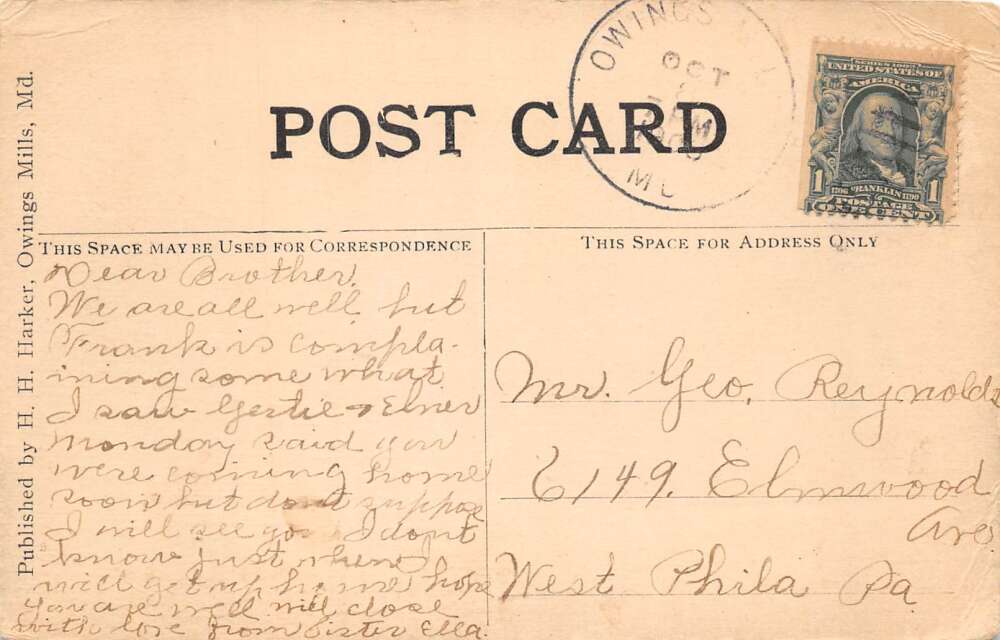 OWINGS
OCT
MD
SERIES 1902
UNITED STATES OF
AMERICA
1 1706 FRANKLIN 1790 1
POSTAGE
ONE CENT
POST CARD
THIS SPACE MAY BE USED FOR CORRESPONDENCE
THIS SPACE FOR ADDRESS ONLY
Published by H. H. Harker, Owings Mills, Md.
Dear Brother,
We are all well but
Frank is compla-
ining some what
I saw Gertie & Elmer
Monday said you
were comming home
soon but dont suppose
I will see you I dont
know just when I
will get up home hope
you are well will close
with love from Sister Ella.
Mr. Geo. Reynolds
6149. Elmwood
Ave
West Phila Pa